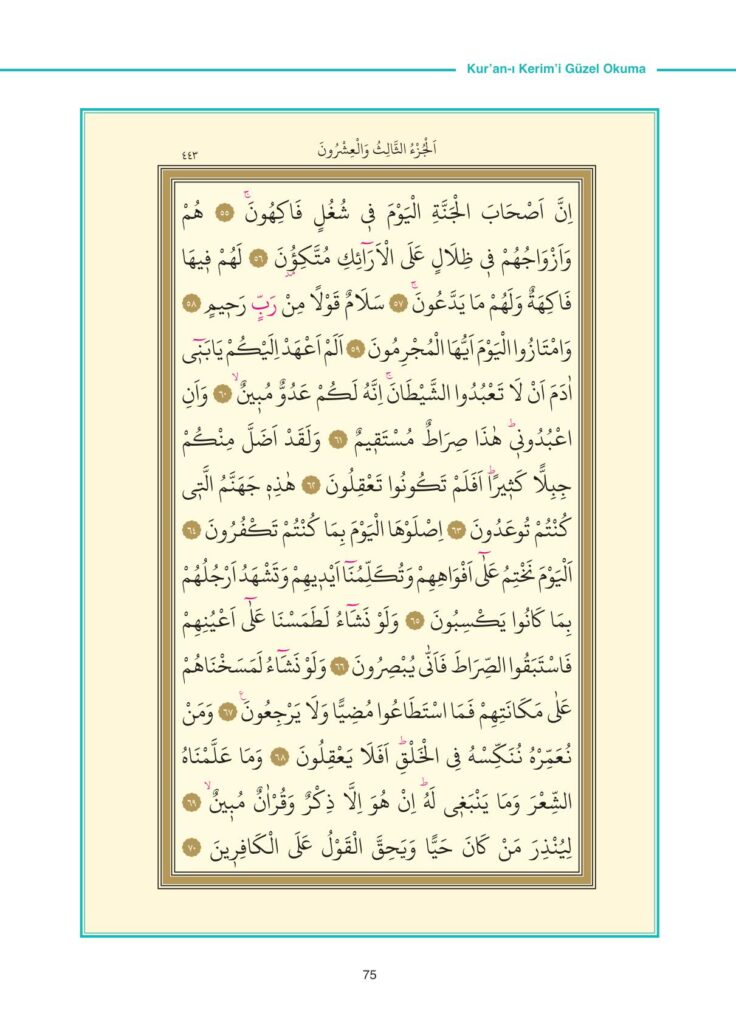 Kur'an-ı Kerim'i Güzel Okuma
٤٤٣ اَلْجُزْءُ الثَّالِثُ وَالْعِشْرُونَ
اِنَّ اَصْحَابَ الْجَنَّةِ الْيَوْمَ ف۪ي شُغُلٍ فَاكِهُونَۚ ﴿٥٥﴾ هُمْ
وَاَزْوَاجُهُمْ ف۪ي ظِلَالٍ عَلَى الْاَرَٓائِكِ مُتَّكِؤُ۫نَ ﴿٥٦﴾ لَهُمْ ف۪يهَا
فَاكِهَةٌ وَلَهُمْ مَا يَدَّعُونَۚ ﴿٥٧﴾ سَلَامٌ قَوْلًا مِنْ رَبٍّ رَح۪يمٍ ﴿٥٨﴾
وَامْتَازُوا الْيَوْمَ اَيُّهَا الْمُجْرِمُونَ ﴿٥٩﴾ اَلَمْ اَعْهَدْ اِلَيْكُمْ يَابَن۪ٓي
اٰدَمَ اَنْ لَا تَعْبُدُوا الشَّيْطَانَۚ اِنَّهُ لَكُمْ عَدُوٌّ مُب۪ينٌۙ ﴿٦٠﴾ وَاَنِ
اعْبُدُون۪يۜ هٰذَا صِرَاطٌ مُسْتَق۪يمٌ ﴿٦١﴾ وَلَقَدْ اَضَلَّ مِنْكُمْ
جِبِلًّا كَث۪يرًاۜ اَفَلَمْ تَكُونُوا تَعْقِلُونَ ﴿٦٢﴾ هٰذِه۪ جَهَنَّمُ الَّت۪ي
كُنْتُمْ تُوعَدُونَ ﴿٦٣﴾ اِصْلَوْهَا الْيَوْمَ بِمَا كُنْتُمْ تَكْفُرُونَ ﴿٦٤﴾
اَلْيَوْمَ نَخْتِمُ عَلٰٓى اَفْوَاهِهِمْ وَتُكَلِّمُنَٓا اَيْد۪يهِمْ وَتَشْهَدُ اَرْجُلُهُمْ
بِمَا كَانُوا يَكْسِبُونَ ﴿٦٥﴾ وَلَوْ نَشَٓاءُ لَطَمَسْنَا عَلٰٓى اَعْيُنِهِمْ
فَاسْتَبَقُوا الصِّرَاطَ فَاَنّٰى يُبْصِرُونَ ﴿٦٦﴾ وَلَوْ نَشَٓاءُ لَمَسَخْنَاهُمْ
عَلٰى مَكَانَتِهِمْ فَمَا اسْتَطَاعُوا مُضِيًّا وَلَا يَرْجِعُونَ۟ ﴿٦٧﴾ وَمَنْ
نُعَمِّرْهُ نُنَكِّسْهُ فِي الْخَلْقِۜ اَفَلَا يَعْقِلُونَ ﴿٦٨﴾ وَمَا عَلَّمْنَاهُ
الشِّعْرَ وَمَا يَنْبَغ۪ي لَهُۜ اِنْ هُوَ اِلَّا ذِكْرٌ وَقُرْاٰنٌ مُب۪ينٌۙ ﴿٦٩﴾
لِيُنْذِرَ مَنْ كَانَ حَيًّا وَيَحِقَّ الْقَوْلُ عَلَى الْكَافِر۪ينَ ﴿٧٠﴾
75